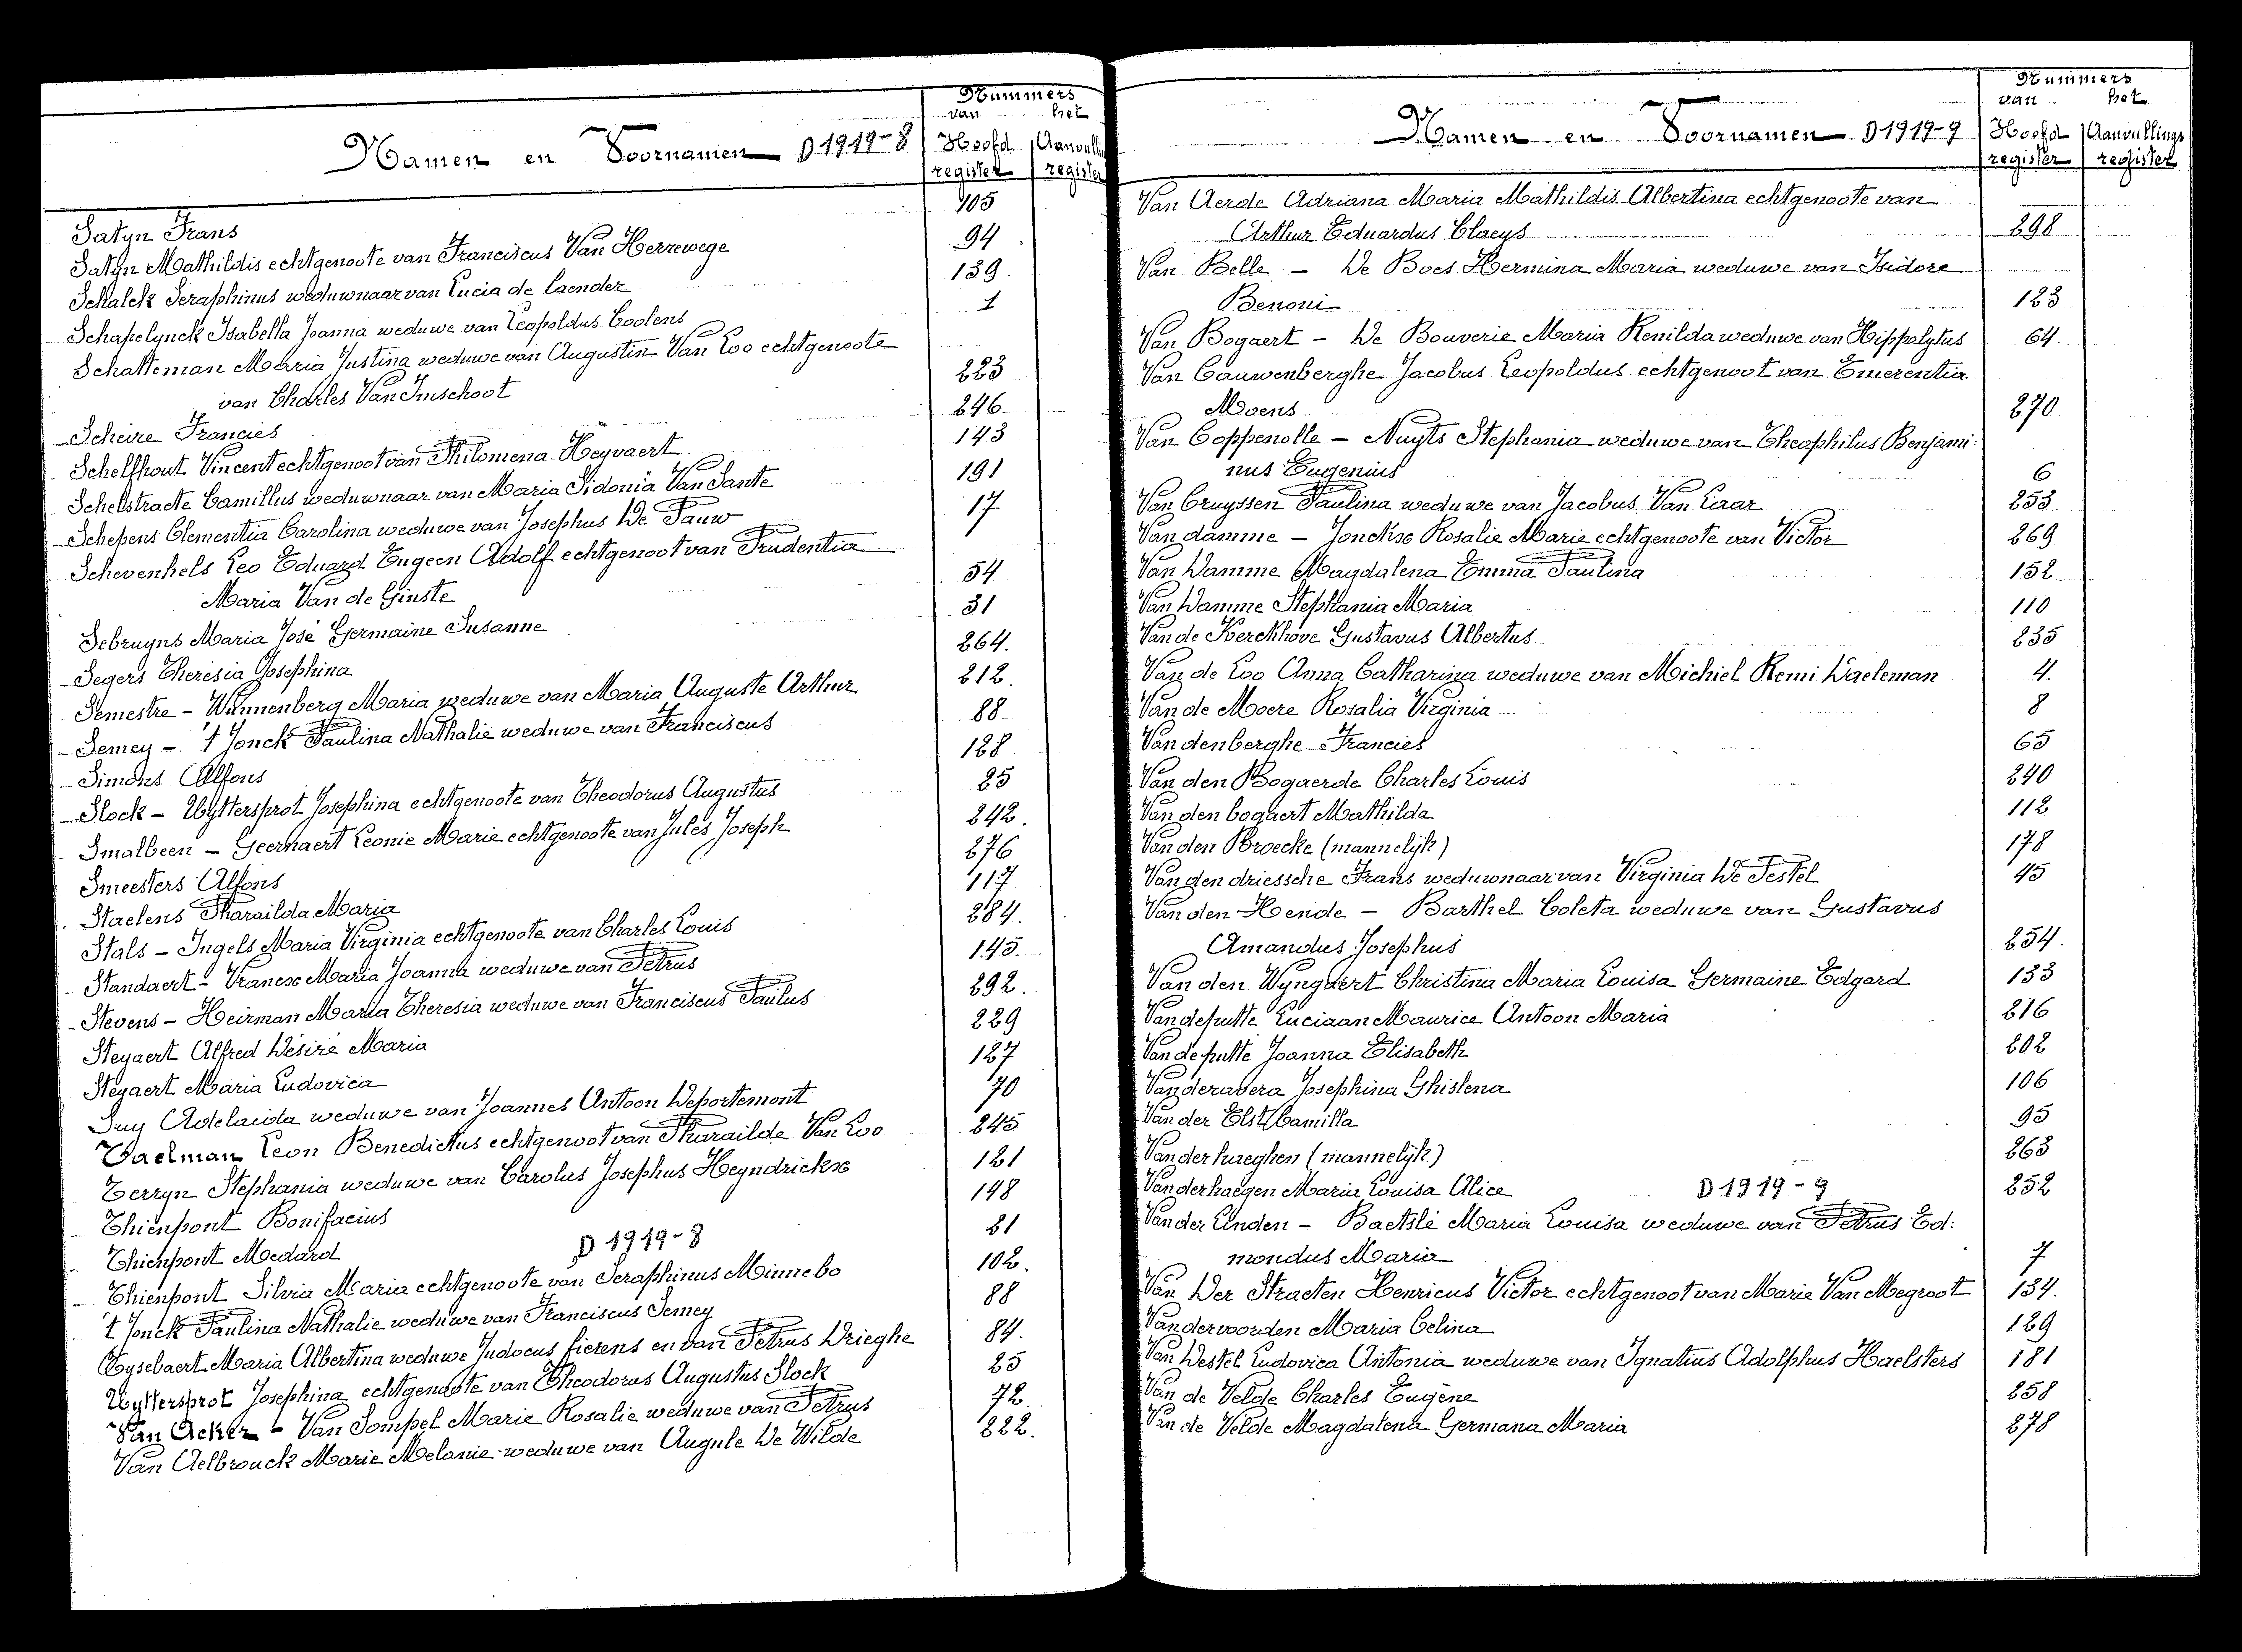 Nummers
van het
Namen en Voornamen D 1919-8 Hoofd Aanvullin
register register
Satyn Frans 105
Satyn Mathildis echtgenoote van Franciscus Van Herrewege 94
Schalck Seraphinus weduwnaar van Lucia de Caender 139
Schapelynck Isabella Joanna weduwe van Leopoldus Coolens 1
Schatteman Maria Justina weduwe van Augustin Van Loo echtgenoote
van Charles Van Imschoot 223
Scheire Francies 246
Schelfhout Vincent echtgenoot van Philomena Heyvaert 143
Schelstraete Camillus weduwnaar van Maria Sidonia Van Sante 191
Schepens Clementia Carolina weduwe van Josephus De Pauw 17
Schevenhels Leo Eduard Eugeen Adolf echtgenoot van Prudentia
Maria Van de Ginste 54
Sebruyns Maria José Germaine Susanne 31
Segers Theresia Josephina 264.
Semestre - Wannenberg Maria weduwe van Maria Auguste Arthur 212.
Semey - 't Jonck Paulina Nathalie weduwe van Franciscus 88
Simons Alfons 128
Slock - Uyttersprot Josephina echtgenoote van Theodorus Augustus 25
Smalbeen - Geernaert Leonie Marie echtgenoote van Jules Joseph 242.
Smeesters Alfons 276
Staelens Pharailda Maria 117
Stals - Ingels Maria Virginia echtgenoote van Charles Louis 284.
Standaert - Vrancx Maria Joanna weduwe van Petrus 145.
Stevens - Heirman Maria Theresia weduwe van Franciscus Paulus 292.
Steyaert Alfred Désiré Maria 229
Steyaert Maria Ludovica 127
Suy Adelaida weduwe van Joannes Antoon Deportemont 70
Taelman Leon Benedictus echtgenoot van Pharailde Van Loo 245
Terryn Stephania weduwe van Carolus Josephus Heyndrickx 121
Thienpont Bonifacius 148
Thienpont Medard D 1919-8 21
Thienpont Silvia Maria echtgenoote van Seraphinus Minnebo 102.
't Jonck Paulina Nathalie weduwe van Franciscus Semey 88
Tysebaert Maria Albertina weduwe Judocus fierens en van Petrus Drieghe 84.
Uyttersprot Josephina echtgenoote van Theodorus Augustus Slock 25
Van Acker - Van Sompel Marie Rosalie weduwe van Petrus 72.
Van Aelbrouck Marie Melanie weduwe van Augule De Wilde 222.
Nummers
van het
Namen en Voornamen D 1919-9 Hoofd Aanvullings
register register
Van Aerde Adriana Maria Mathildis Albertina echtgenoote van
Arthur Eduardus Claeys 298
Van Belle - De Boes Hermina Maria weduwe van Isidore
Benoni 123
Van Bogaert - De Bouverie Maria Renilda weduwe van Hippolytus 64.
Van Cauwenberghe Jacobus Leopoldus echtgenoot van Emerentia
Moens 270
Van Coppenolle - Nuyts Stephania weduwe van Theophilus Benjami:
nus Eugenius 6
Van Cruyssen Paulina weduwe van Jacobus Van Laar 253
Van damme - Jonckx Rosalie Marie echtgenoote van Victor 269
Van Damme Magdalena Emma Paulina 152.
Van Damme Stephania Maria 110
Van de Kerckhove Gustavus Albertus 235
Van de Loo Anna Catharina weduwe van Michiel Remi Daeleman 4.
Van de Moere Rosalia Virginia 8
Van denberghe Francies 65
Van den Bogaerde Charles Louis 240
Van den bogaert Mathilda 112
Van den Broecke (mannelijk) 178
Van den driessche Frans weduwnaar van Virginia De Pestel 45
Van den Hende - Barthel Coleta weduwe van Gustavus
Amandus Josephus 254.
Van den Wyngaert Christina Maria Louisa Germaine Edgard 133
Vandeputte Luciaan Maurice Antoon Maria 216
Vandeputte Joanna Elisabeth 202
Vanderavera Josephina Ghislena 106
Van der Elst Camilla 95
Van derhaeghen (mannelijk) 263
Vanderhaegen Maria Louisa Alice D 1919-9 252
Vander Linden - Baetslé Maria Louisa weduwe van Petrus Ed:
mondus Maria 7
Van Der Straeten Henricus Victor echtgenoot van Marie Van Megroot 134.
Vandervoorden Maria Celina 129
Van Destel Ludovica Antonia weduwe van Ignatius Adolphus Haelsters 181
Van de Velde Charles Eugène 258
Van de Velde Magdalena Germana Maria 278